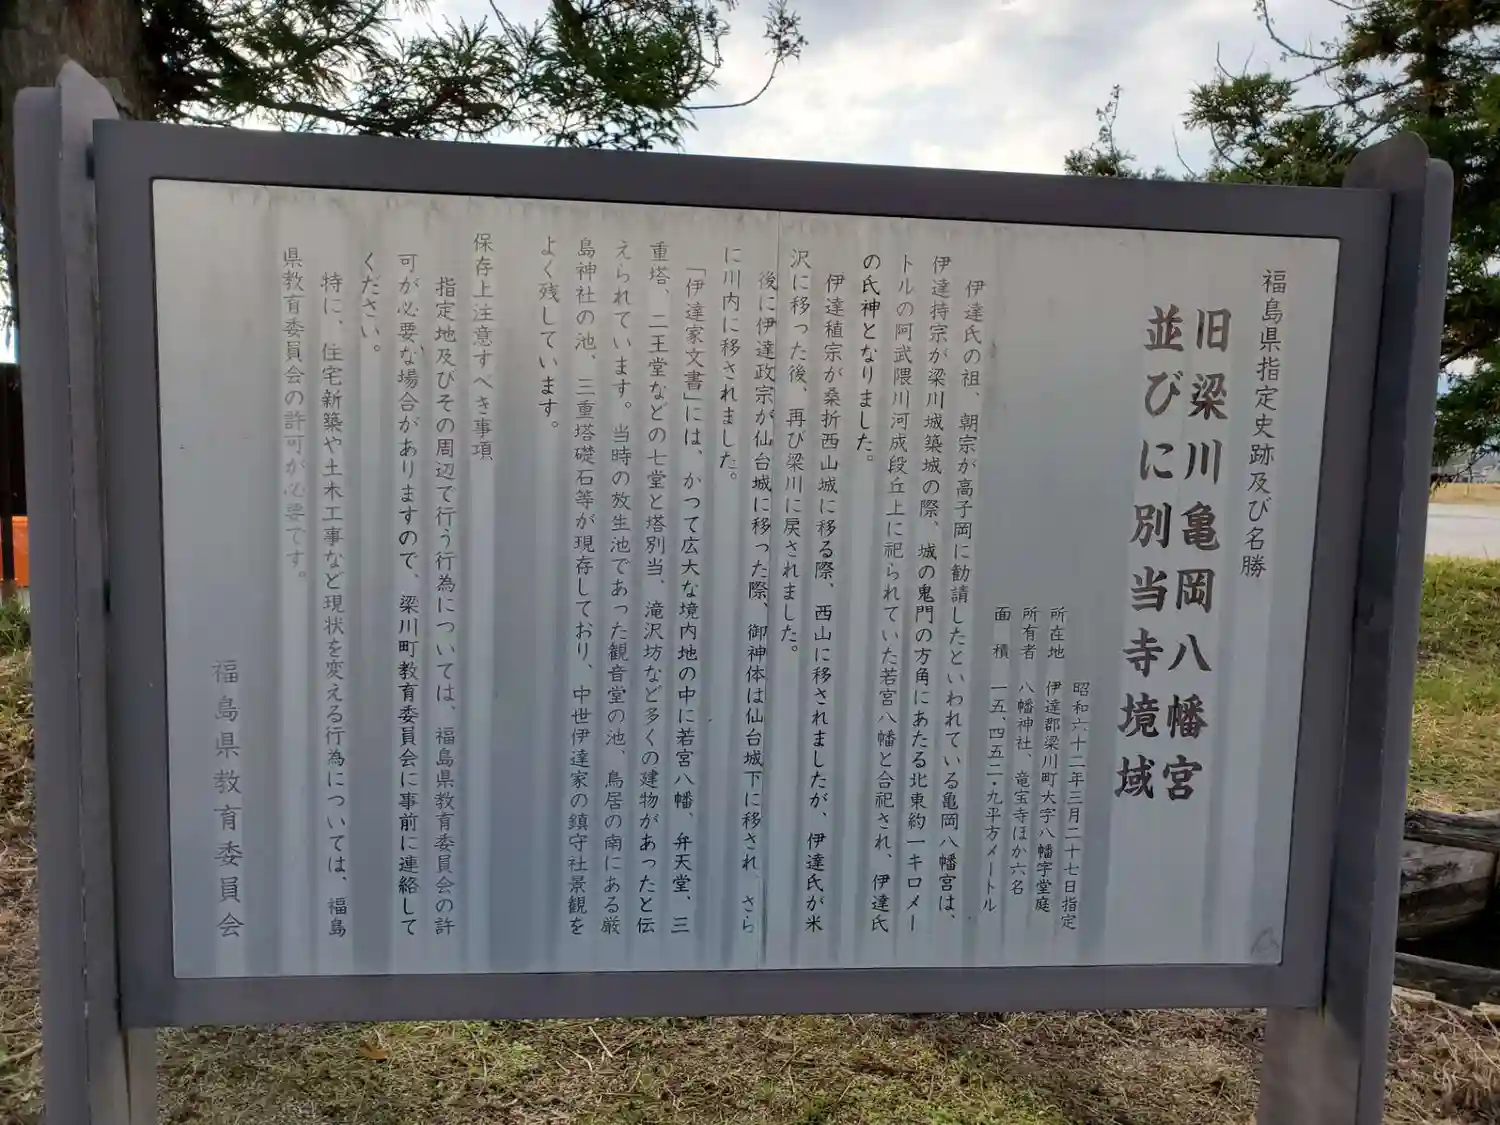 福島県指定史跡及び名勝
旧梁川亀岡八幡宮
並びに別当寺境域
昭和六十二年三月二十七日指定
所在地 伊達郡梁川町大字八幡字堂庭
所有者 八幡神社、竜宝寺ほか六名
面 積 一五、四五二・九平方メートル
伊達氏の祖、朝宗が高子岡に勧請したといわれている亀岡八幡宮は、
伊達持宗が梁川城築城の際、城の鬼門の方角にあたる北東約一キロメー
トルの阿武隈川河成段丘上に祀られていた若宮八幡と合祀され、伊達氏
の氏神となりました。
伊達稙宗が桑折西山城に移る際、西山に移されましたが、伊達氏が米
沢に移った後、再び梁川に戻されました。
後に伊達政宗が仙台城に移った際、御神体は仙台城下に移され、さら
に川内に移されました。
「伊達家文書」には、かつて広大な境内地の中に若宮八幡、弁天堂、三
重塔、二王堂などの七堂と塔別当、滝沢坊など多くの建物があったと伝
えられています。当時の放生池であった観音堂の池、鳥居の南にある厳
島神社の池、三重塔礎石等が現存しており、中世伊達家の鎮守社景観を
よく残しています。
保存上注意すべき事項
指定地及びその周辺で行う行為については、福島県教育委員会の許
可が必要な場合がありますので、梁川町教育委員会に事前に連絡して
ください。
特に、住宅新築や土木工事など現状を変える行為については、福島
県教育委員会の許可が必要です。
福島県教育委員会